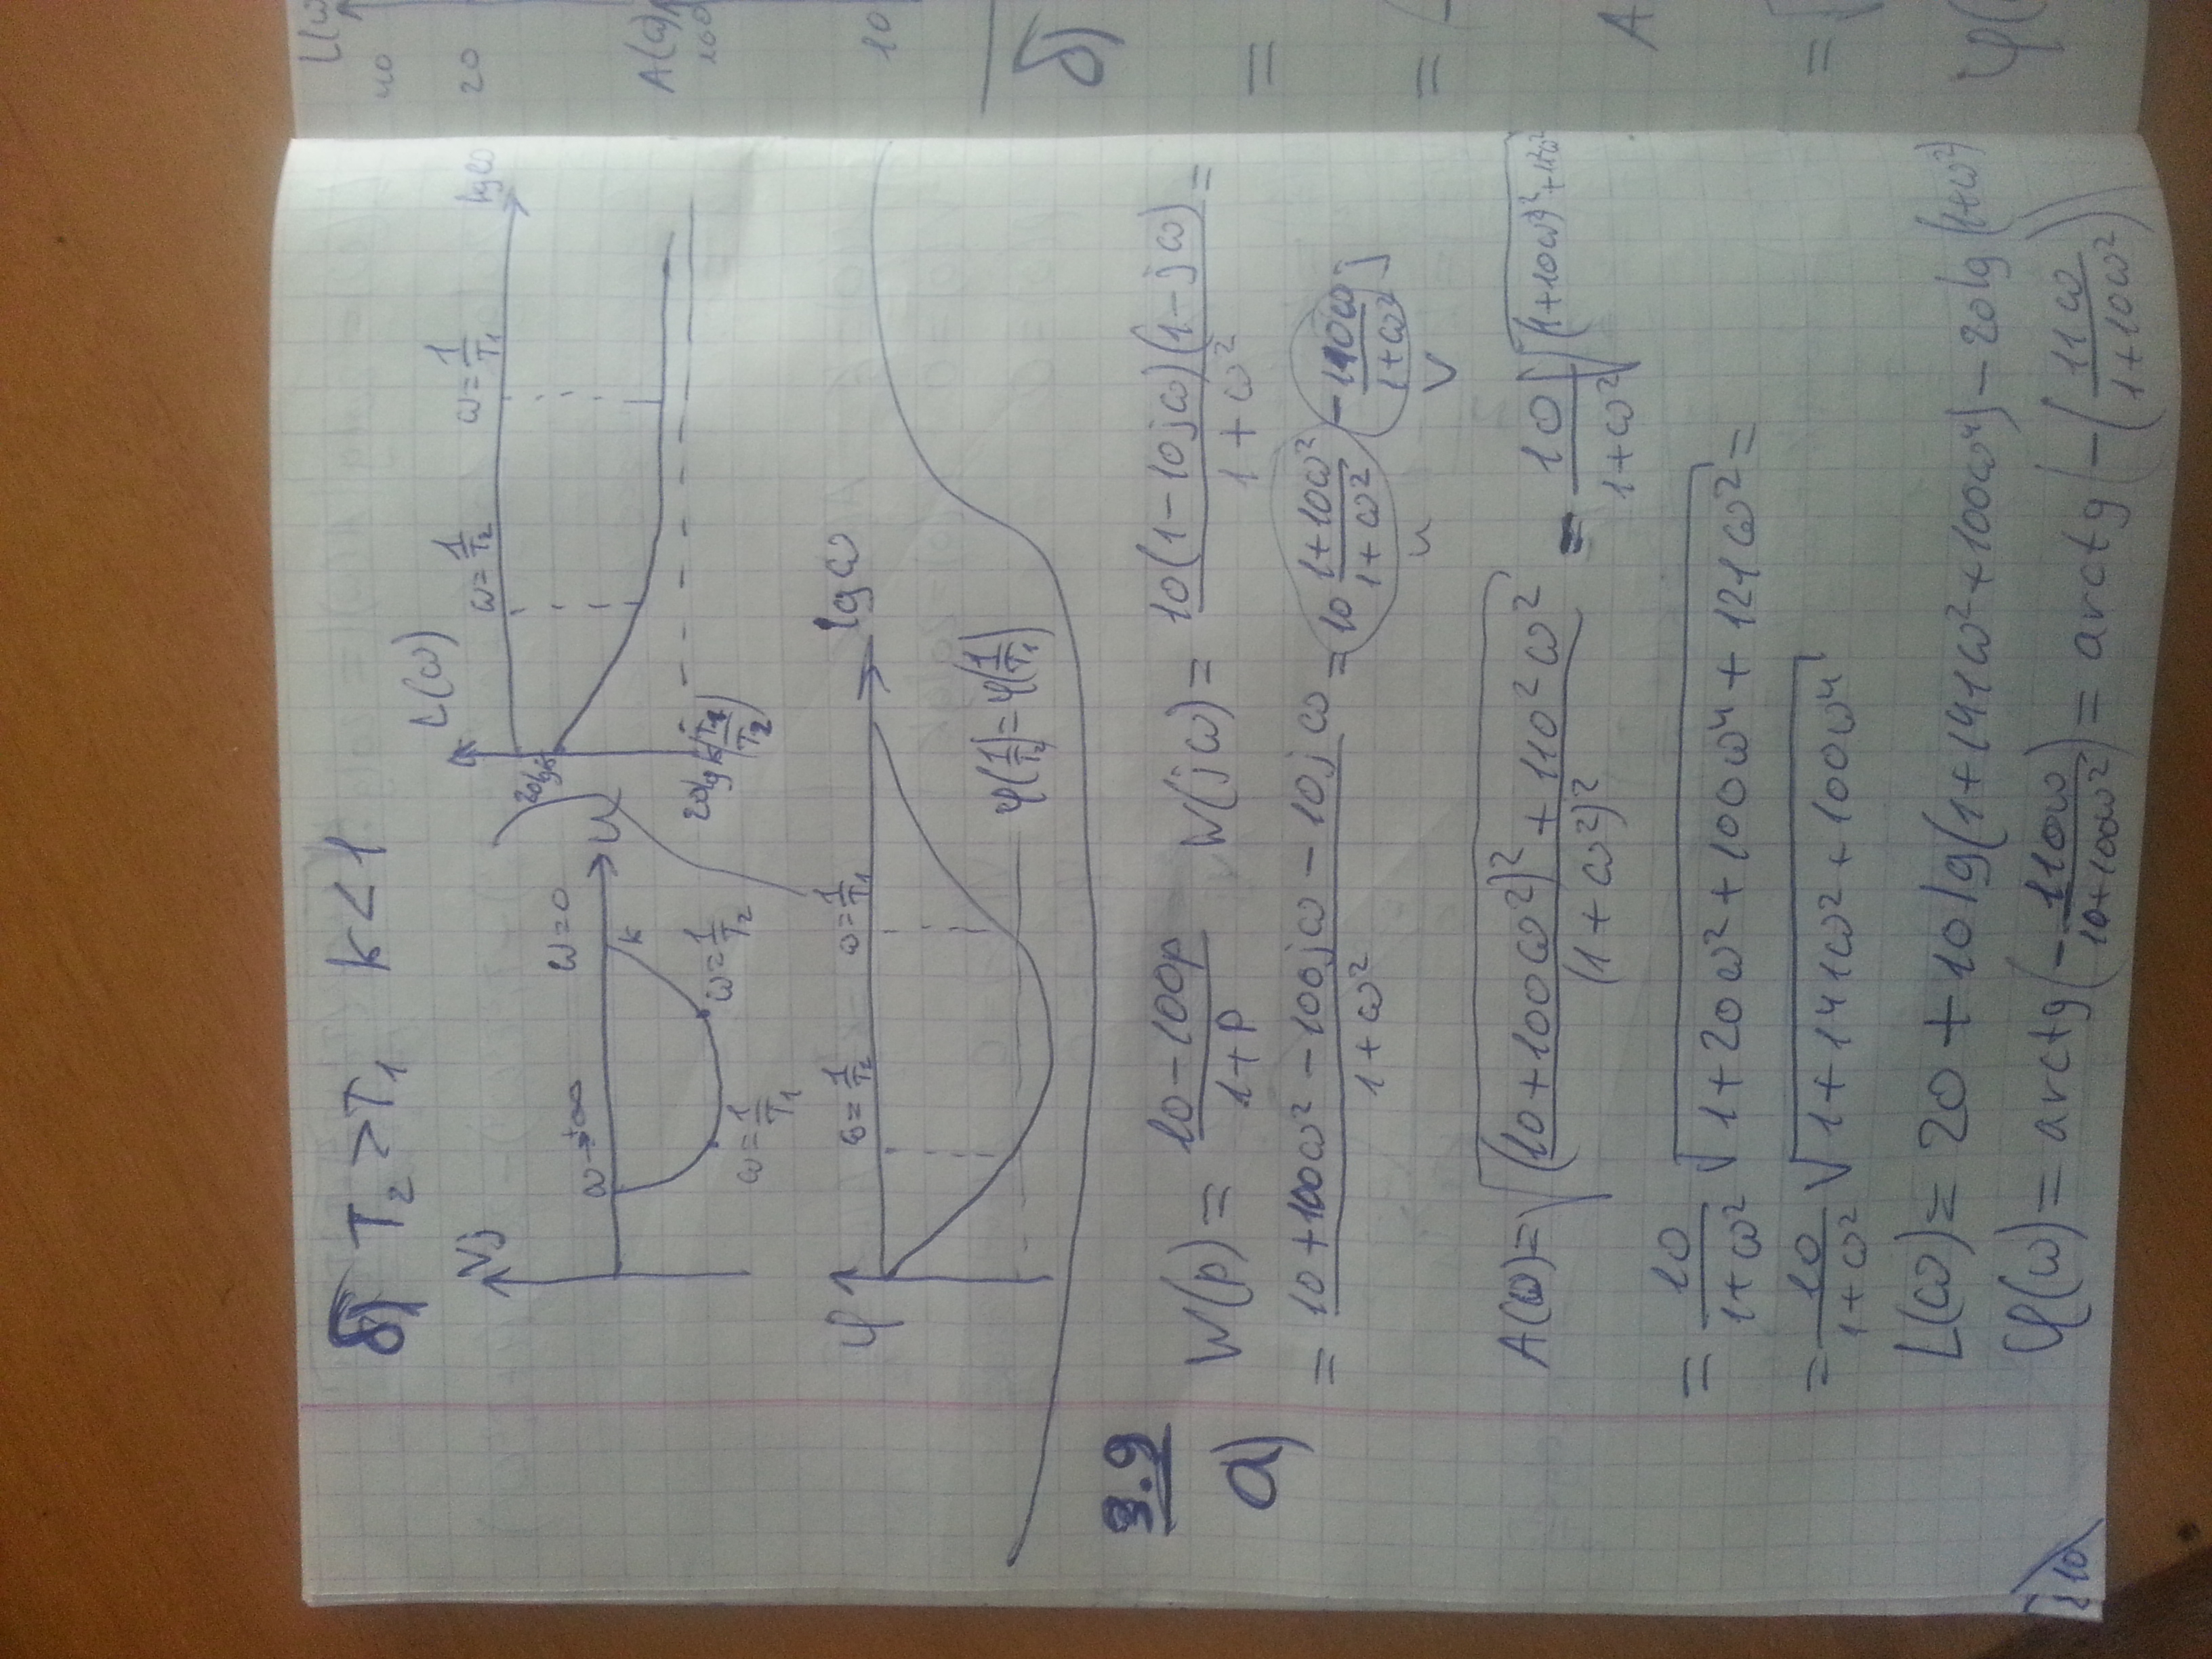 б) T₂ > T₁ k < 1
Vj
ω→+∞
ω=0
U
k
ω=1/T₁
ω=1/T₂
L(ω)
ω=1/T₂
ω=1/T₁
lgω
20lgk
20lgk(T₁/T₂)
φ
ω=1/T₂
ω=1/T₁
lgω
φ(1/T₂)=φ(1/T₁)
3.9
а) W(p) = (10-100p)/(1+p) W(jω) = 10(1-10jω)(1-jω)/(1+ω²) =
= (10+100ω²-100jω-10jω)/(1+ω²) = 10 (1+10ω²)/(1+ω²) - 110ω/(1+ω²) j
u V
A(ω)= √((10+100ω²)²+110²ω²)/(1+ω²)²) = 10/(1+ω²) √((1+10ω²)²+11²ω²)
= 10/(1+ω²) √(1+20ω²+100ω⁴+121ω²) =
= 10/(1+ω²) √(1+141ω²+100ω⁴)
L(ω)= 20+10lg(1+141ω²+100ω⁴)-20lg(1+ω²)
φ(ω) = arctg(-110ω/(10+100ω²)) = arctg(-(11ω/(1+10ω²)))
L(ω
40
20
A(ω)
100
10
б)
=
=
A
=
φ(